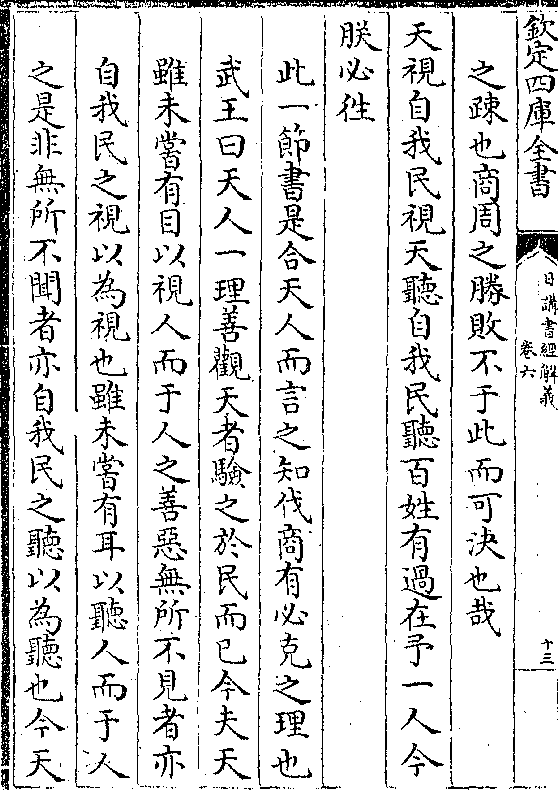 欽定四庫全書
日講書經解義
卷六
十三
之踈也商周之勝敗不于此而可決也哉
天視自我民視天聽自我民聽百姓有過在予一人今
朕必徃
此一節書是合天人而言之知伐商有必克之理也
武王曰天人一理善觀天者驗之於民而已今夫天
雖未嘗有目以視人而于人之善惡無所不見者亦
自我民之視以為視也雖未嘗有耳以聽人而于人
之是非無所不聞者亦自我民之聽以為聽也今天